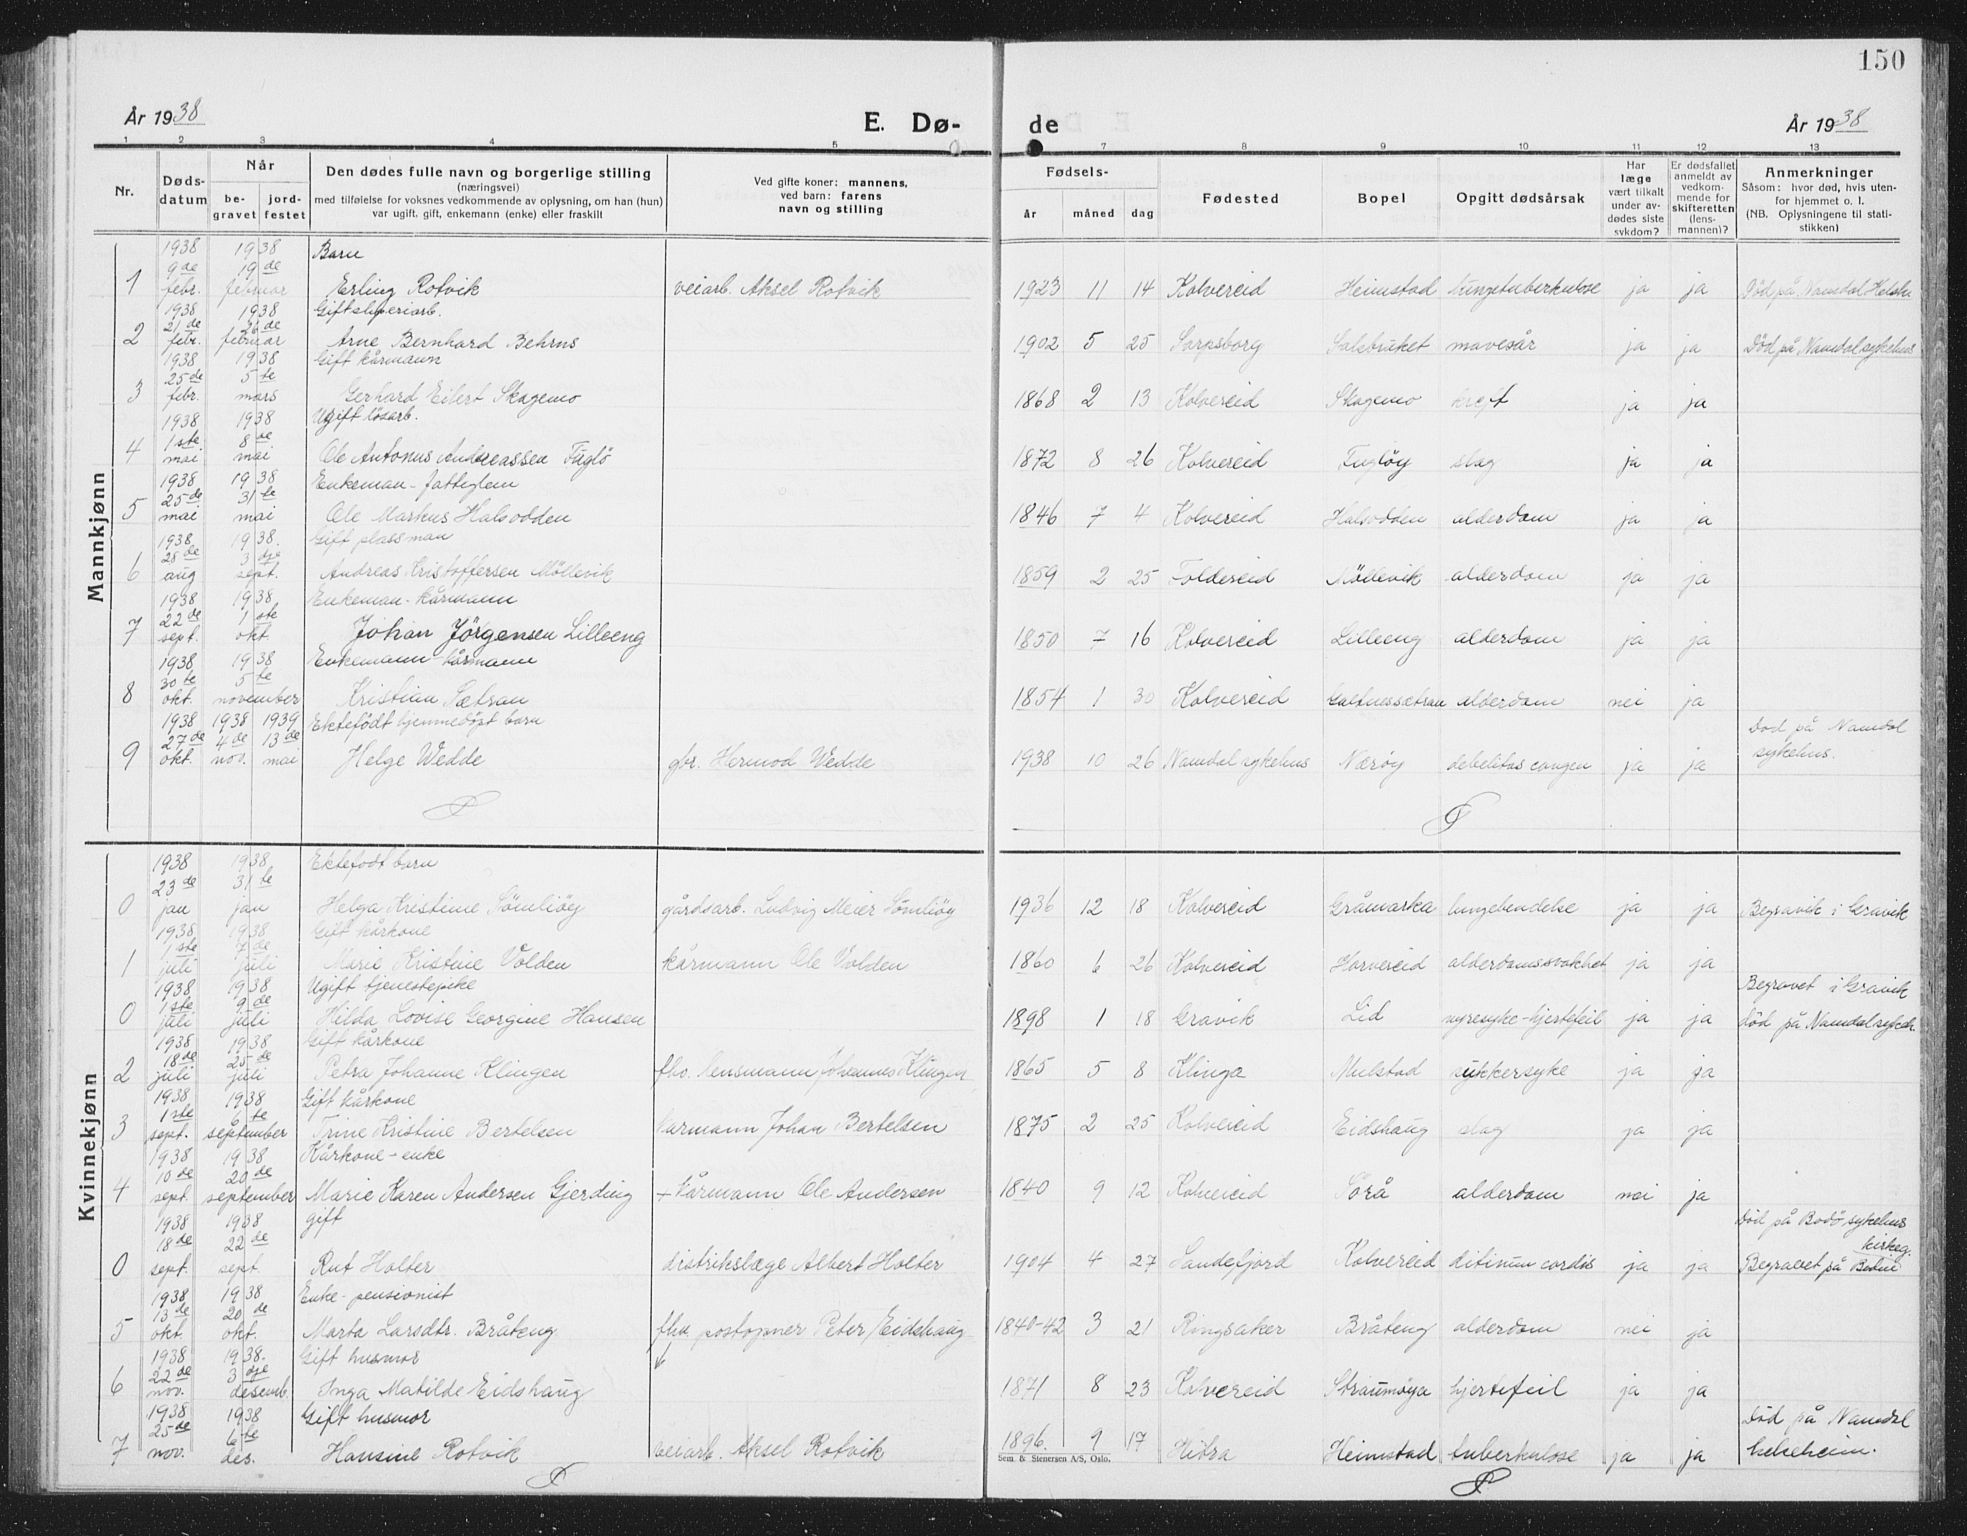 150
År 1938
E. Dø-
de
År 1938
1 2 3 4 5 7 8 9 10 11 12 13
Nr.
Døds-
datum
Når
be-
gravet
jord-
festet
Den dødes fulle navn og borgerlige stilling
(næringsvei)
med tilføielse for voksnes vedkommende av oplysning, om han (hun)
var ugift, gift, enkemann (enke) eller fraskilt
Ved gifte koner: mannens,
ved barn: farens
navn og stilling
Fødsels-
år måned dag
Fødested
Bopel
Opgitt dødsårsak
Har
læge
vært tilkalt
under av-
dødes siste
sykdom?
Er dødsfallet
anmeldt av
vedkom-
mende for
skifteretten
(lens-
mannen)?
Anmerkninger
Såsom: hvor død, hvis uten-
for hjemmet o. l.
(NB. Oplysningene til stati-
stikken)
Mannkjønn
1938 1938 Barn
9de 19de
1 febr. februar Erling Rotvik veiarb. Aksel Rotvik 1923 11 14 Kolvereid Heimstad lungetuberkulose ja ja Död på Namdal
1938 1938 Gift sliperiarb.
21de 26de
2 febr. februar Arne Bernhard Behrns 1902 5 25 Sarpsborg Salsbruket mavesår ja ja Död på Namdal sykehus
1938 1938 Gift kårmann
25de 5te
3 febr. mars Gerhard Eilert Skagemo 1868 2 13 Kolvereid Skagemo kreft ja ja
1938 1938 Ugift lösarb.
1ste 8de
4 mai mai Ole Antonus Andreassen Fuglö 1872 8 26 Kolvereid Fuglöy slag ja ja
1938 1938 Enkeman - fattiglem
25de 31te
5 mai mai Ole Markus Halsodden 1846 7 4 Kolvereid Halsodden alderdom ja ja
1938 1938. Gift plassman
28de 3dje
6 aug sept. Andreas Kristoffersen Möllevik 1859 2 25 Foldereid Möllevik alderdom ja ja
1938 1938. Enkeman - kårmann
22de 1ste
7 sept. okt. Johan Jörgensen Lilleeng 1850 7 16 Kolvereid Lilleeng alderdom ja ja
1938 1938 Enkemann - kårmann
30te 5te
8 okt. november Kristian Sætran 1854 1 30 Kolvereid Galtnessætran alderdom nei ja
1938 1938 1939 Ektefödt hjemmedöpt barn Död på Namdal
27de 4de 13de
9 okt. nov. mai Helge Wedde gbr. Hermod Wedde 1938 10 26 Namdal sykehus Nærøy debelitas congen ja ja sykehus.
Kvinnekjønn
1938 1938 Ektefödt barn
23de 31te
0 jan jan Helga Kristine Sömliöy gårdsarb. Ludvig Meier Sömliöy 1936 12 18 Kolvereid Gråmarka lungebendelse ja ja Begravik i Gravik
1938 1938 Gift kårkone
1ste 7de
1 juli juli Marie Kristine Volden kårmann Ole Volden 1860 6 26 Kolvereid Horvereid alderdomssvakhet ja ja
1938 1938 Ugift tjenestepike Begravet i Gravik
1ste 9de
0 juli juli Hilda Lovise Georgine Hansen 1898 1 18 Gravik Lid nyresyke - hjertefeil ja ja Död på Namdal sykeh.
1938 1938 Gift kårkone
18de 25de
2 juli juli Petra Johanne Klingen fhv. lensmann Johannes Klingen 1865 5 8 Klinga Mulstad sukkersyke ja ja
1938 1938 Gift kårkone
1ste te
3 sept. september Trine Kristine Bertelsen kårmann Johan Bertelsen 1875 2 25 Kolvereid Eidshaug slag ja ja
1938 1938 Kårkone - enke
10de 20de
4 sept. september Marie Karen Andersen Gjerding + kårmann Ole Andersen 1840 9 12 Kolvereid Sörå alderdom nei ja
1938 1938 gift Död på Bodö sykehus
18de 22de kirkeg.
0 sept. sept. Rut Holter distrikslæge Albert Holter 1904 4 27 Sandefjord Kolvereid ditinum cordis ja ja Begravet på
1938 1938 Enke - pensionist
13de 20de
5 okt. okt. Marta Larsdtr. Bråteng fhv. postopner Peter Eidshaug 1840-42 3 21 Ringsaker Bråteng alderdom nei ja
1938 1938. Gift husmor
22de 3dje
6 nov. desemb. Inga Matilde Eidshaug 1871 8 23 Kolvereid Straumöya hjertefeil ja ja
1938 1938 Gift husmor Död på Namdal
25de 6te
7 nov. des. Hansine Rotvik veiarb. Aksel Rotvik 1896. 9 17 Hitra Heimstad tuberkulose ja ja helseheim.
Sem & Stenersen A/S, Oslo.